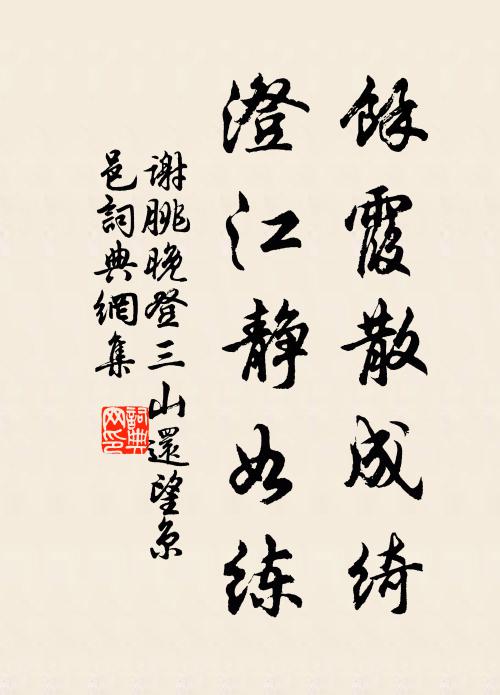 餘霞散成綺
澄江靜如練
谢朓晚登三山還望京
邑詞典網集
詞典
网印